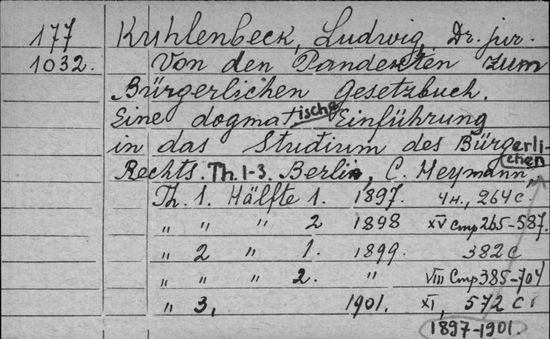 177 Kuhlenbeck, Ludwig, Dr. jur.
1032. Von den Pandekten zum
Bürgerlichen Gesetzbuch.
Eine dogmatische Einführung
in das Studium des Bürgerlichen
Rechts. Th. 1-3. Berlin, C. Heymann,
Th. 1. Hälfte 1. 1897. 4н., 264 с.
" " " 2 1898 XV стр 265-587.
" 2 " 1. 1899. 382 с
" " " 2. " VIII стр 385-704
" 3, 1901. XI, 572 с
1897-1901.